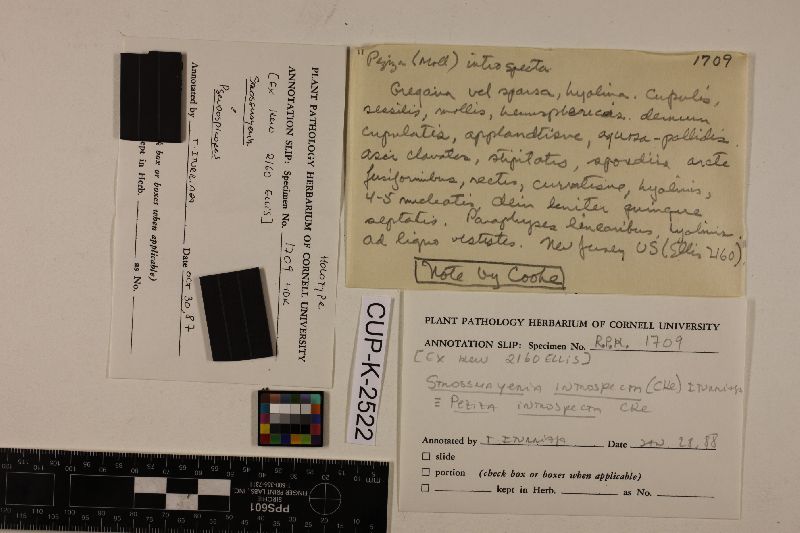 Peziza (Moll) introspecta 1709
Gregaria vel sparsa, hyalina. Cupulis,
sessilis, mollis, hemisphericis. demum
cupulatis, applanatisve, aquosa-pallidis.
asci clavatis, stipitatis, sporidiis arcte
fusiformibus, rectis, curvatisve, hyalinis,
4-5 nucleatis, dein leniter quinque
septatis. Paraphyses linearibus, hyalinis.
ad ligno vestites. New Jersey US (Ellis 2160)
Note by Cooke
PLANT PATHOLOGY HERBARIUM OF CORNELL UNIVERSITY
ANNOTATION SLIP: Specimen No. R.P.K. 1709
[EX KEW 2160 ELLIS]
STROSSMAYERIA INTROSPECTA (CKE) ITURRIAGA
≡ PEZIZA INTROSPECTA CKE
Annotated by T. ITURRIAGA Date JAN 28, 88
slide
portion (check box or boxes when applicable)
kept in Herb. as No.
HOLOTYPE
PLANT PATHOLOGY HERBARIUM OF CORNELL UNIVERSITY
ANNOTATION SLIP: Specimen No. 1709
[EX KEW 2160 ELLIS]
Strossmayeria
Pseudospiropes
Annotated by T. ITURRIAGA Date OCT 30, 87
k box or boxes when applicable)
kept in Herb. as No.
CUP-K-2522
PPS601
SIRCHIE
FINGER PRINT LABS., INC.
1-800-356-7311
mm